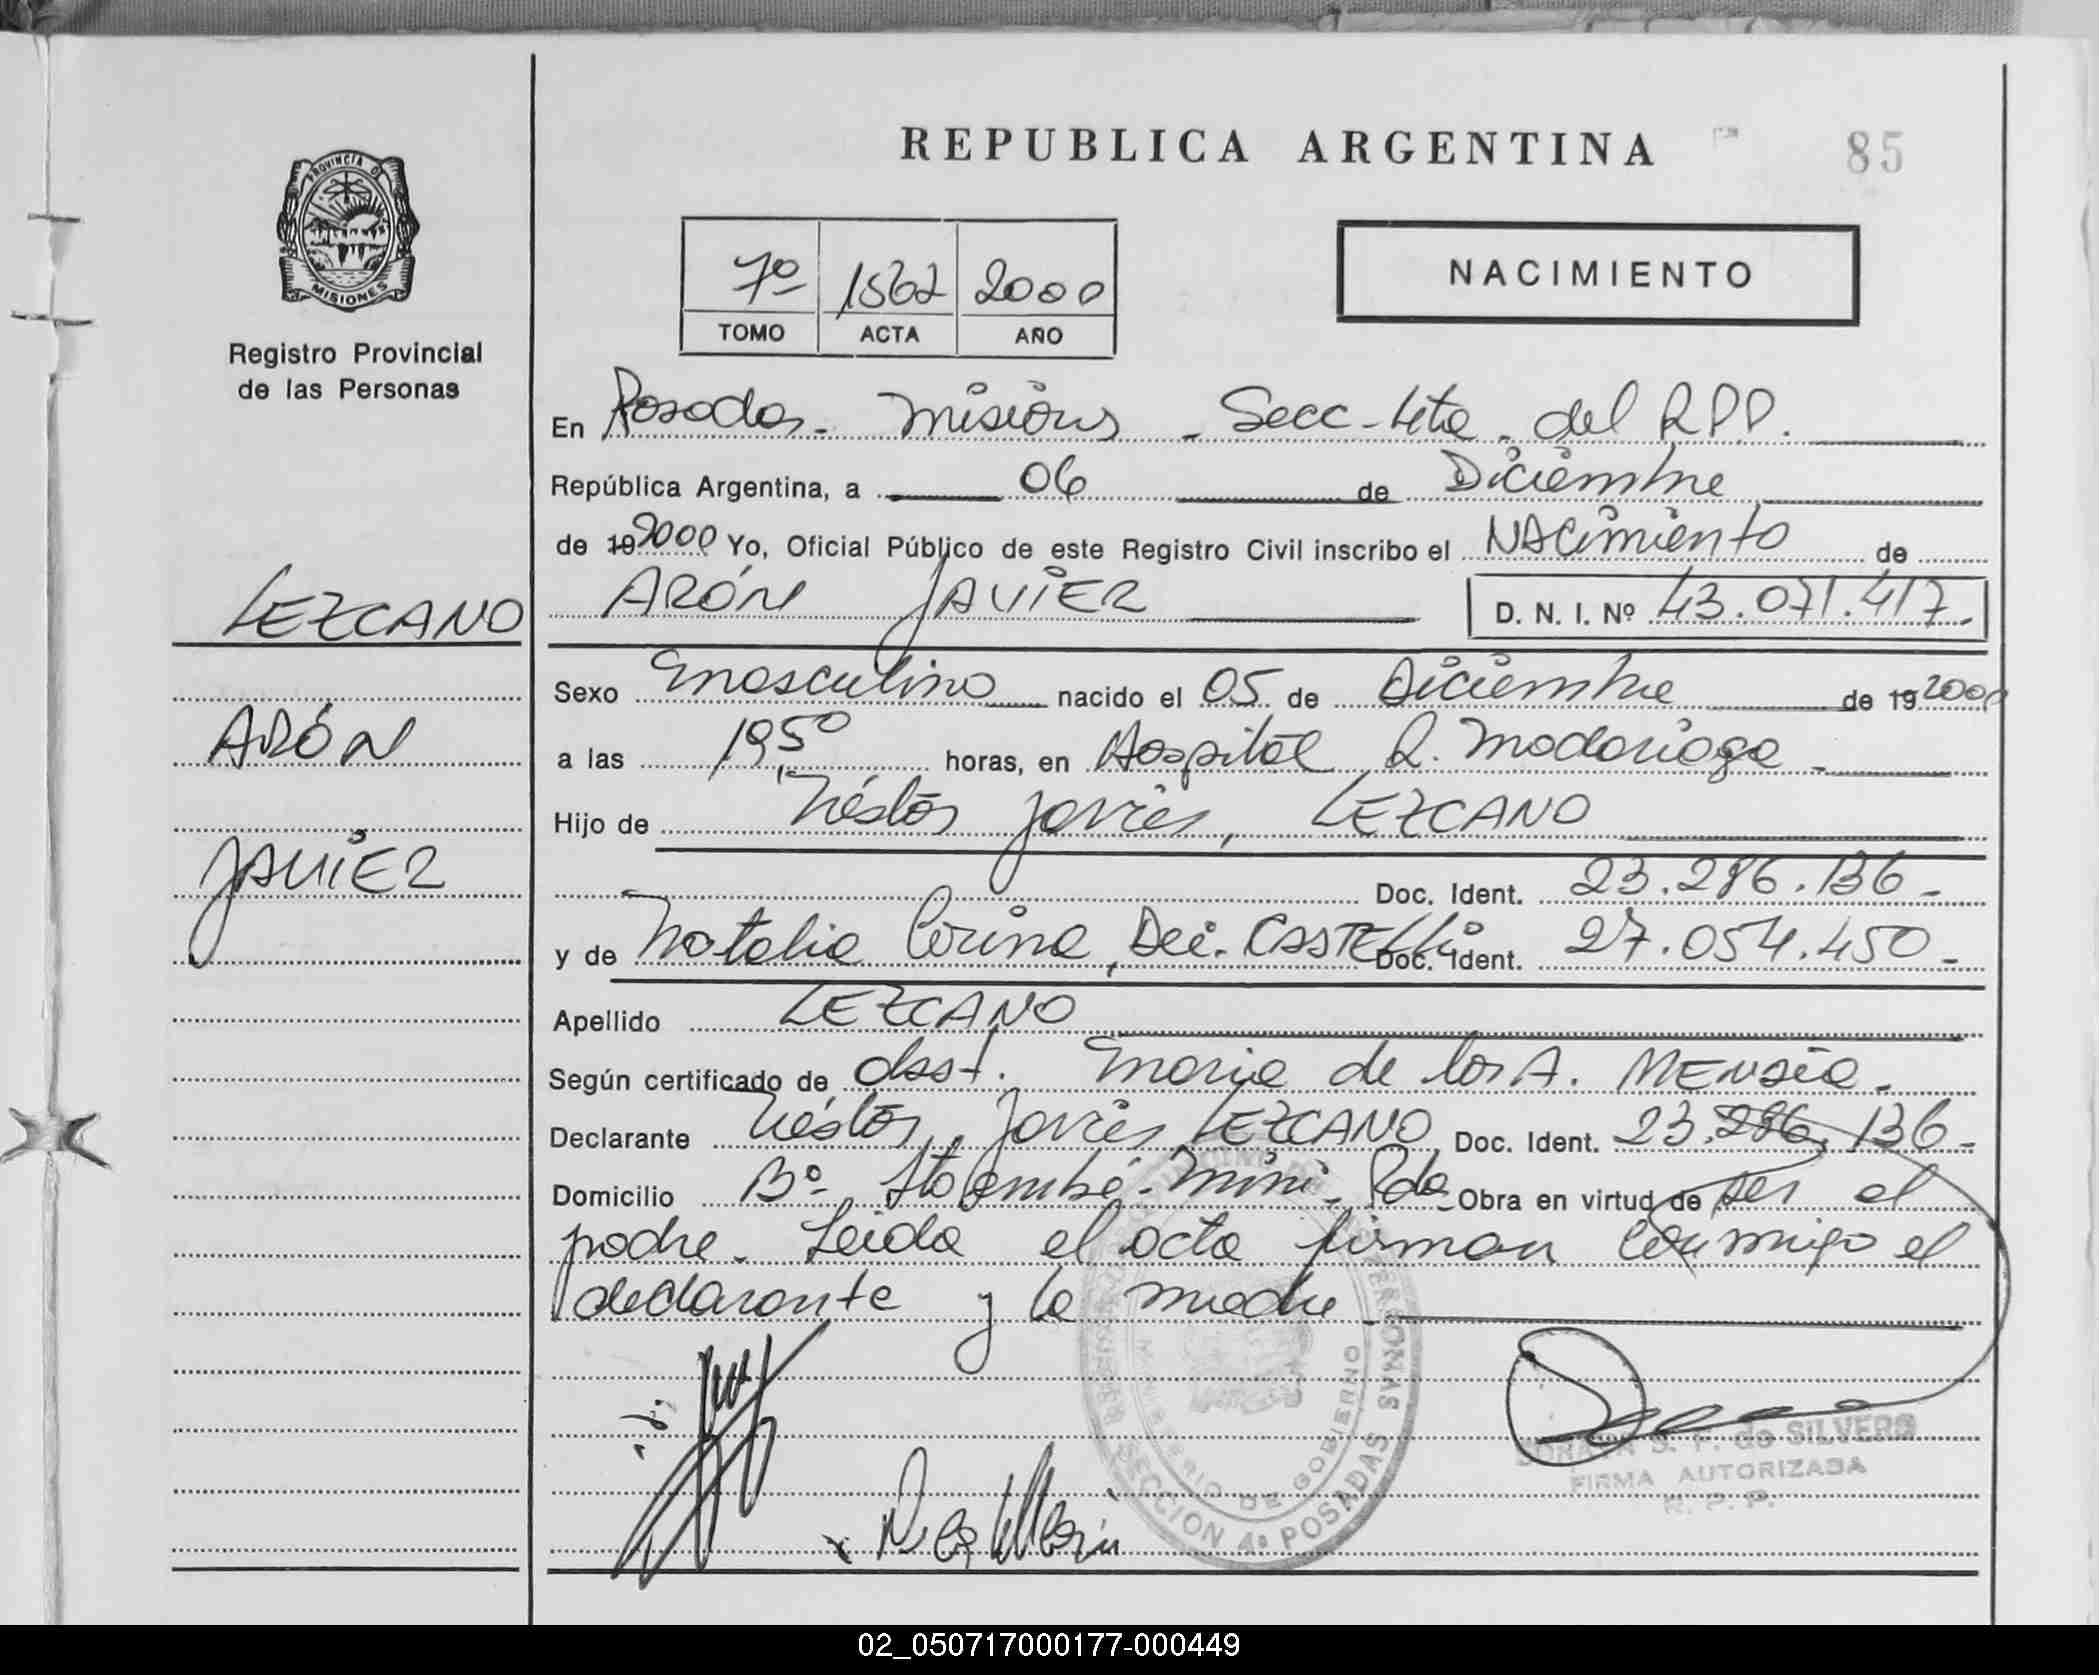 REPUBLICA ARGENTINA
85
PROVINCIA D
MISIONES
Registro Provincial
de las Personas
7º 1562 2000
TOMO ACTA AÑO
NACIMIENTO
En Posadas - Misiones - Secc - 4ta - del RPP.
República Argentina, a 06 de Diciembre
de 19 2000 Yo, Oficial Público de este Registro Civil inscribo el NACimiento de
ARÓN JAVIER D. N. I. Nº 43.071.417.-
LEZCANO
ARÓN
JAVIER
Sexo masculino nacido el 05 de Diciembre de 19 2000
a las 19,50 horas, en Hospital R. Madariaga -
Hijo de Néstor Javier, LEZCANO
Doc. Ident. 23.286.136 -
y de Natalia Corina, Dei. CASTELLi Doc. Ident. 27.054.450 -
Apellido LEZCANO
Según certificado de Obst. María de los A. MENsia -
Declarante Néstor, Javier LEZCANO Doc. Ident. 23.286.136 -
Domicilio Bº Itaembé - Miní - Pdas Obra en virtud de ser el
padre - Leida el acta firman conmigo el
declarante y la madre
MINISTERIO DE GOBIERNO
SECCION 4ª POSADAS
S. F. de SILVERO
FIRMA AUTORIZADA
R. P. P.
02_050717000177-000449